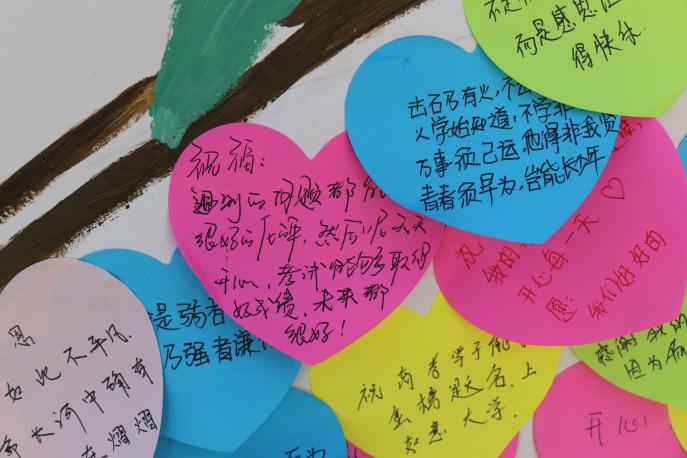 而是感恩
得快乐.
击石乃有火,不
人学始知道,不学非
万事须己运,他得非我贤
青者须早为,岂能长少年
祝福:
遇到的问题都能
很好的解,然后以后天天
开心,考试能够取得
好成绩,未来都
很好!
祝
我的
开心每一天♡
愿:我们姓好的
是弱者
乃强者谦
恩
如此不平凡.
长河中确有
熠熠
祝高考学子能
金榜题名.上
如意大学.
感谢我的
因为有
开心!